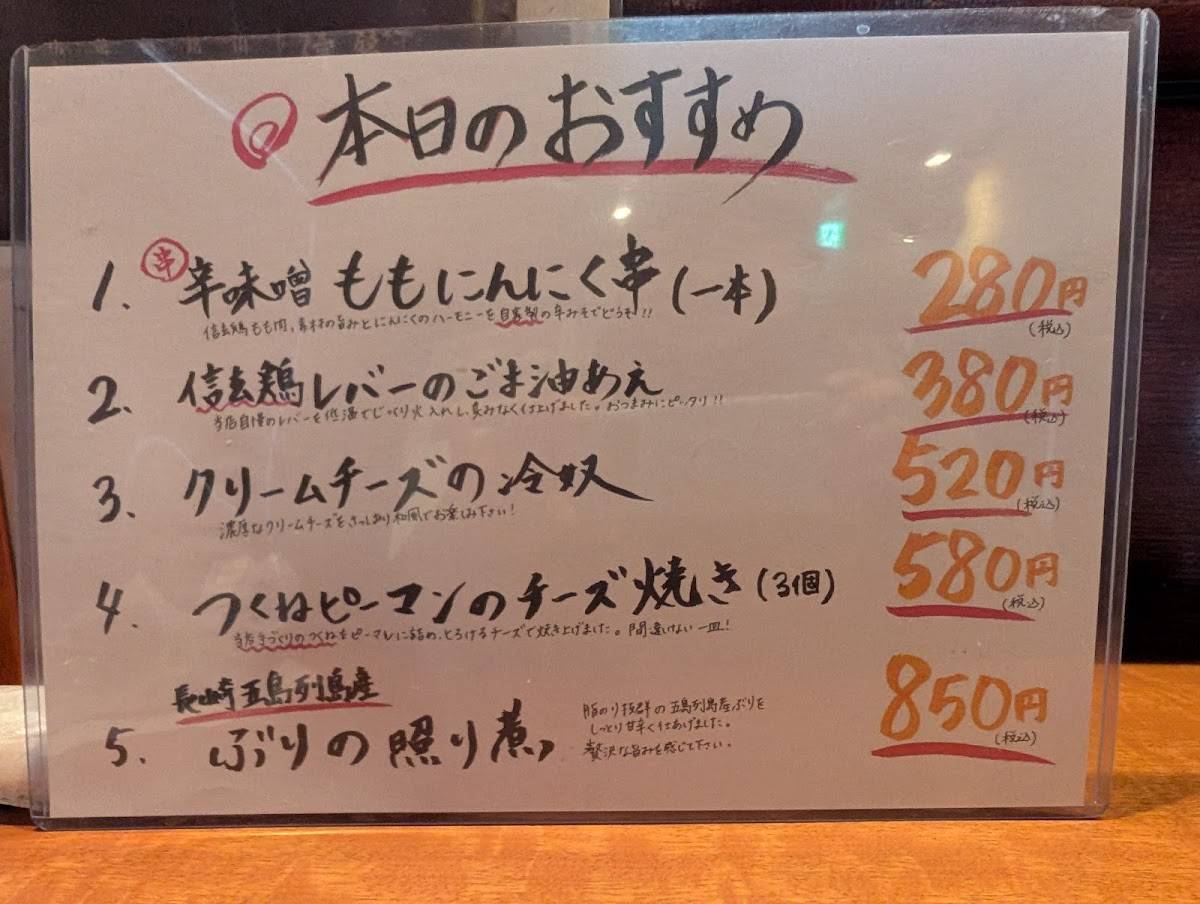 本日のおすすめ
1. 串 辛味噌 ももにんにく串 (一本) 280円 (税込)
信玄鶏もも肉、素材の旨みとにんにくのハーモニーを自家製の辛みそでどうぞ!!
2. 信玄鶏レバーのごま油あえ 380円 (税込)
当店自慢のレバーを低温でじっくり火入れし、臭みなく仕上げました。おつまみにピッタリ!!
3. クリームチーズの冷奴 520円 (税込)
濃厚なクリームチーズをさっぱり和風でお楽しみ下さい!
4. つくねピーマンのチーズ焼き (3個) 580円 (税込)
当店手づくりのつくねをピーマンに詰め、とろけるチーズで焼き上げました。間違いない一皿!
長崎五島列島産
5. ぶりの照り煮 850円 (税込)
脂のり抜群の五島列島産ぶりを
しっとり甘辛く仕あげました。
贅沢な旨みを感じて下さい。